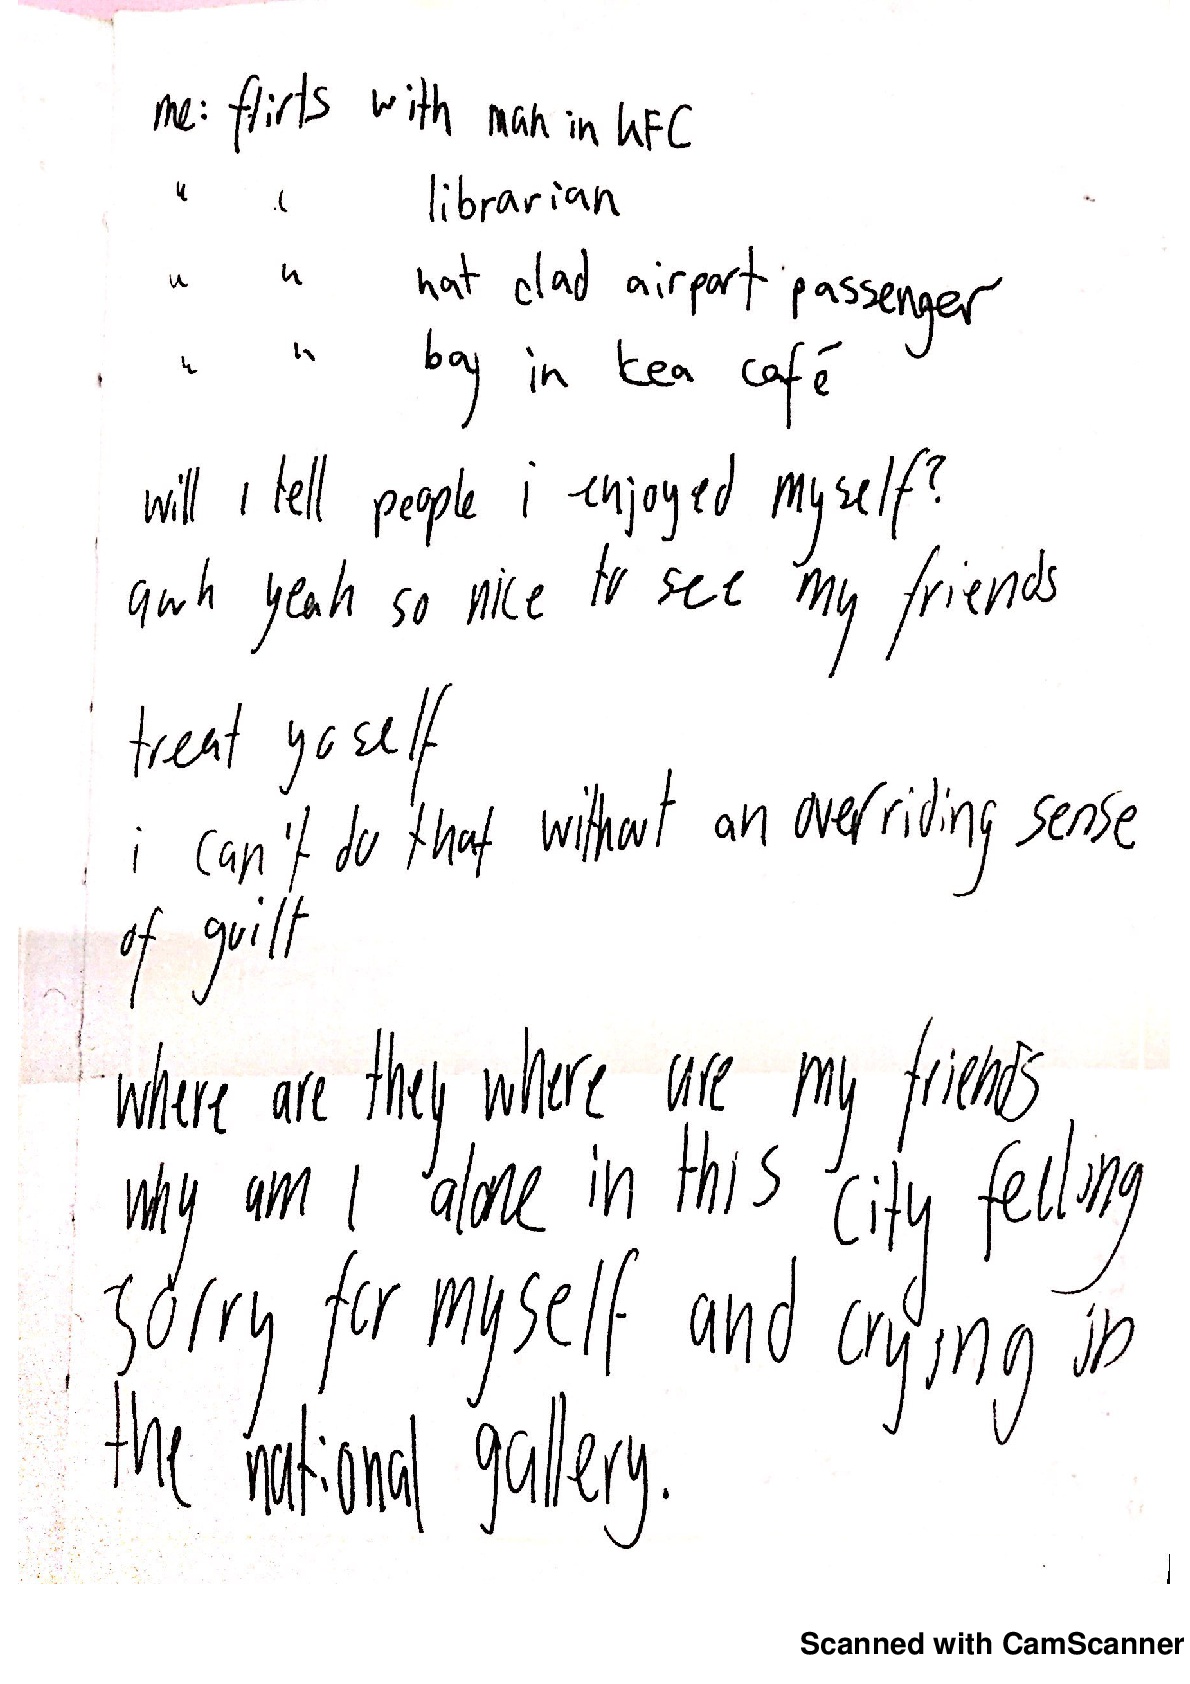 me: flirts with man in KFC
" " librarian
" " hat clad airport passenger
" " boy in tea café
will i tell people i enjoyed myself?
awh yeah so nice to see my friends
treat yoself
i can't do that without an overriding sense
of guilt
where are they where are my friends
why am I alone in this city feeling
sorry for myself and crying in
the national gallery.
Scanned with CamScanner